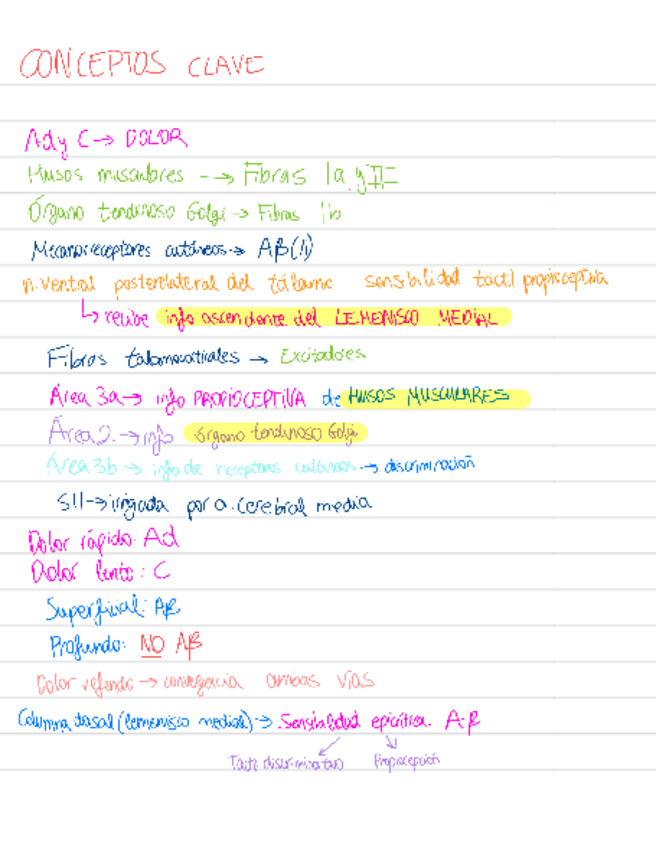 CONCEPTOS CLAVE
Ad y C → DOLOR
Husos musculares --→ Fibras Ia y II
Órgano tendinoso Golgi → Fibras Ib
Mecanorreceptores cutáneos → Aβ (II)
n. Ventral posterolateral del tálamo sensibilidad tactil propioceptiva
↳ recibe info ascendente del LEMENISCO MEDIAL
Fibras talamocorticales → Excitadores
Área 3a → info PROPIOCEPTIVA de HUSOS MUSCULARES
Área 2 → info órgano tendinoso Golgi
Área 3b → info de receptores cutáneos → discriminación
SII → irrigada por a. cerebral media
Dolor rápido: Ad
Dolor lento: C
Superficial: Aβ
Profundo: NO Aβ
Dolor referido → convergencia ambas vías
Columna dosal (lemenisco medial) → Sensibilidad epicrítica. A-β
Tacto discriminativo Propiocepción